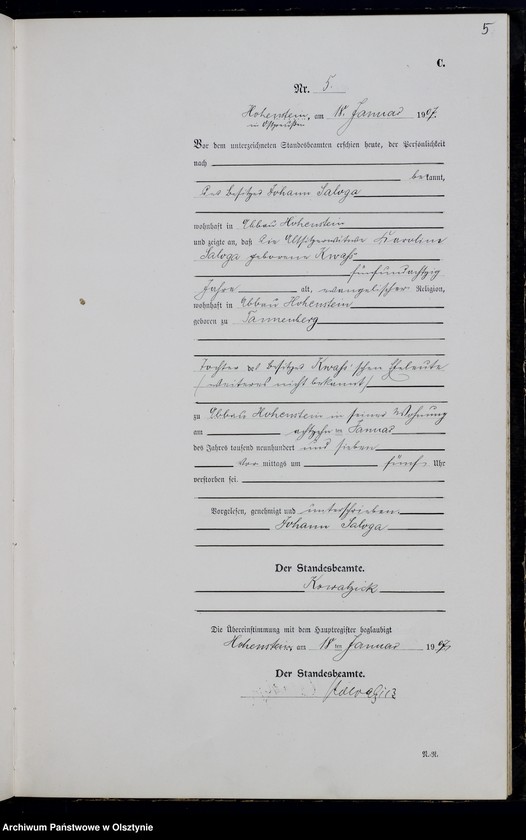 5
C.
Nr. 5.
Hohenstein, am 18. Januar 1907.
in Ostpreußen
Vor dem unterzeichneten Standesbeamten erschien heute, der Persönlichkeit
nach
bekannt,
der Besitzer Johann Saloga
wohnhaft in Abbau Hohenstein
und zeigte an, daß die Altsitzerwitwe Karoline
Saloga geborene Kwaß
fünfundachtzig
Jahre alt, evangelischer Religion,
wohnhaft in Abbau Hohenstein
geboren zu Tannenberg
Tochter des Besitzer Kwaß'schen Eheleute
(weiteres nicht bekannt)
zu Abbau Hohenstein in seiner Wohnung
am achtzehn ten Januar
des Jahres tausend neunhundert und sieben
Vor mittags um fünf Uhr
verstorben sei.
Vorgelesen, genehmigt und unterschrieben
Johann Saloga
Der Standesbeamte.
Kowalzick
Die Übereinstimmung mit dem Hauptregister beglaubigt
Hohenstein, am 18ten Januar 1907
Der Standesbeamte.
N.-R.
Archiwum Państwowe w Olsztynie